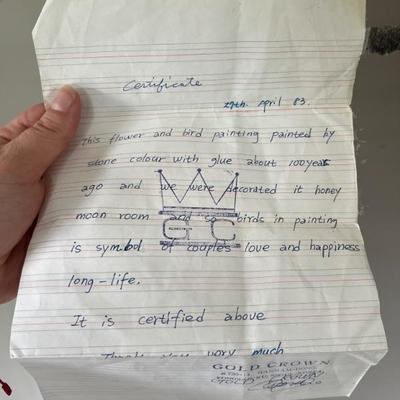 Certificate
27th. April 83.
This flower and bird painting painted by
stone colour with glue about 100 years
ago and we were decorated it honey
moon room and so birds in painting
is symbol of couples love and happiness
long-life.
It is certified above
Thank you very much
GC
GOLD CROWN